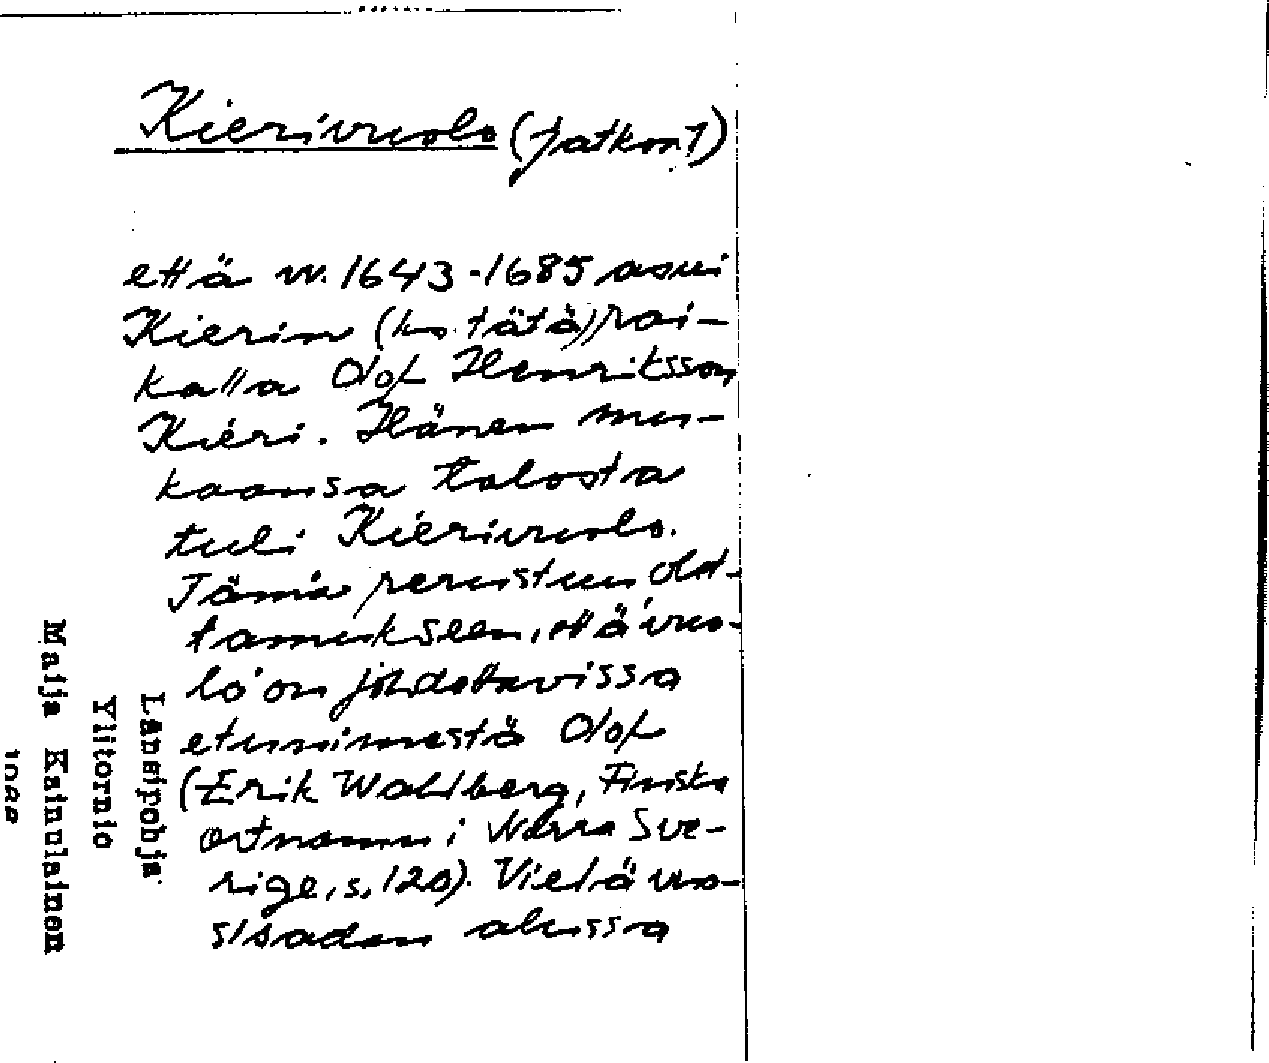 Kierivuolo (jatkoa 1)
että vv. 1643-1685 asui
Kierin (ks. tätä) pai-
kalla Olof Henriksson
Kieri. Hänen mu-
kaansa talosta
tuli Kierivuolo.
Tämä perustuu olet-
tamukseen, että vuo-
lo on johdettavissa
etunimestä Olof
(Erik Wahlberg, Finska
ortnamn i Norra Sve-
rige, s. 120). Vielä vuo-
sisadan alussa
Länsipohja
Ylitornio
Maija Kainulainen
1988